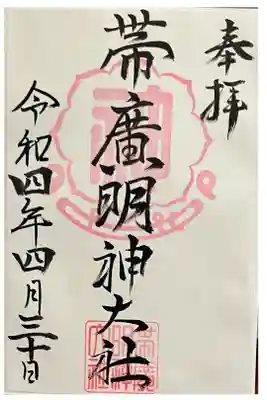 奉拝
帯廣明神大社
令和四年四月三十日